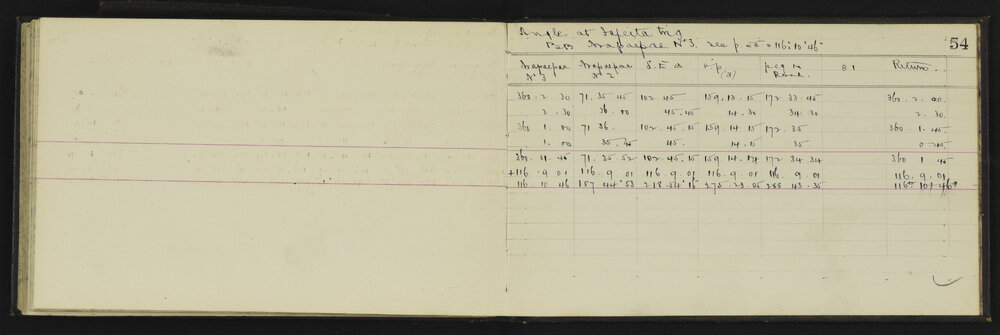 54
Angles at Safeita trig
Arapaepae Nº 3. see p. 55 = 116° 10' 46"
Arapaepae Arapaepae S.E Δ peg on 01 Return
Nº 3 Nº 2 (3) Road
360. 2. 30 71. 35. 45 102. 45 159. 13. 15 172 33. 45 360. 2. 00
2. 30 36. 00 45. 45 14. 30 34. 30 2. 30
360 1. 00 71 36. 102. 45. 15 159. 14. 15 172. 35 360. 1. 45
1. 00 35. 45. 14. 15 35 0. 45
360. 71. 35. 52 102. 45. 15 159. 14. 04 172 34 34 360 1. 45
+116. 9. 01 116. 9. 01 116 9. 01 116. 9. 01 116. 9. 01 116. 9. 01
116 10 46 187 44. 53 218. 54. 16 275. 23. 05 288 43. 35 116° 10' 46"